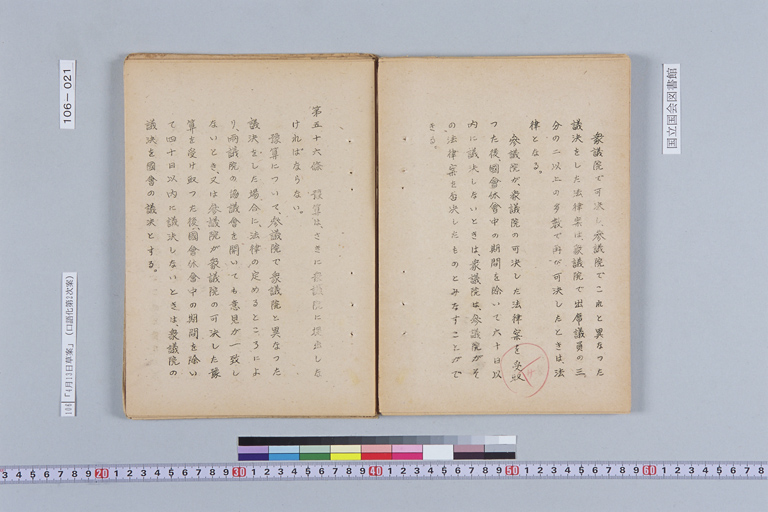 衆議院で可決し、参議院でこれと異なつた
議決をした法律案は、衆議院で出席議員の三
分の二以上の多数で再び可決したときは、法
律となる。
参議院が、衆議院の可決した法律案を受取
つた後國會休會中の期間を除いて六十日以
内に議決しないときは、衆議院は、参議院がそ
の法律案を否決したものとみなすことがで
きる。
第五十六條 豫算は、さきに衆議院に提出しな
ければならない。
豫算について、参議院で衆議院と異なつた
議決をした場合に、法律の定めるところによ
り、兩議院の協議會を開いても意見が一致し
ないとき、又は参議院が衆議院の可決した豫
算を受け取つた後、國會休會中の期間を除い
て四十日以内に議決しないときは、衆議院の
議決を國會の議決とする。
国立国会図書館
106-021
106「4月13日草案」(口語化第2次案)
3 4 5 6 7 8 9 20 1 2 3 4 5 6 7 8 9 30 1 2 3 4 5 6 7 8 9 40 1 2 3 4 5 6 7 8 9 50 1 2 3 4 5 6 7 8 9 60 1 2 3 4 5 6 7 8